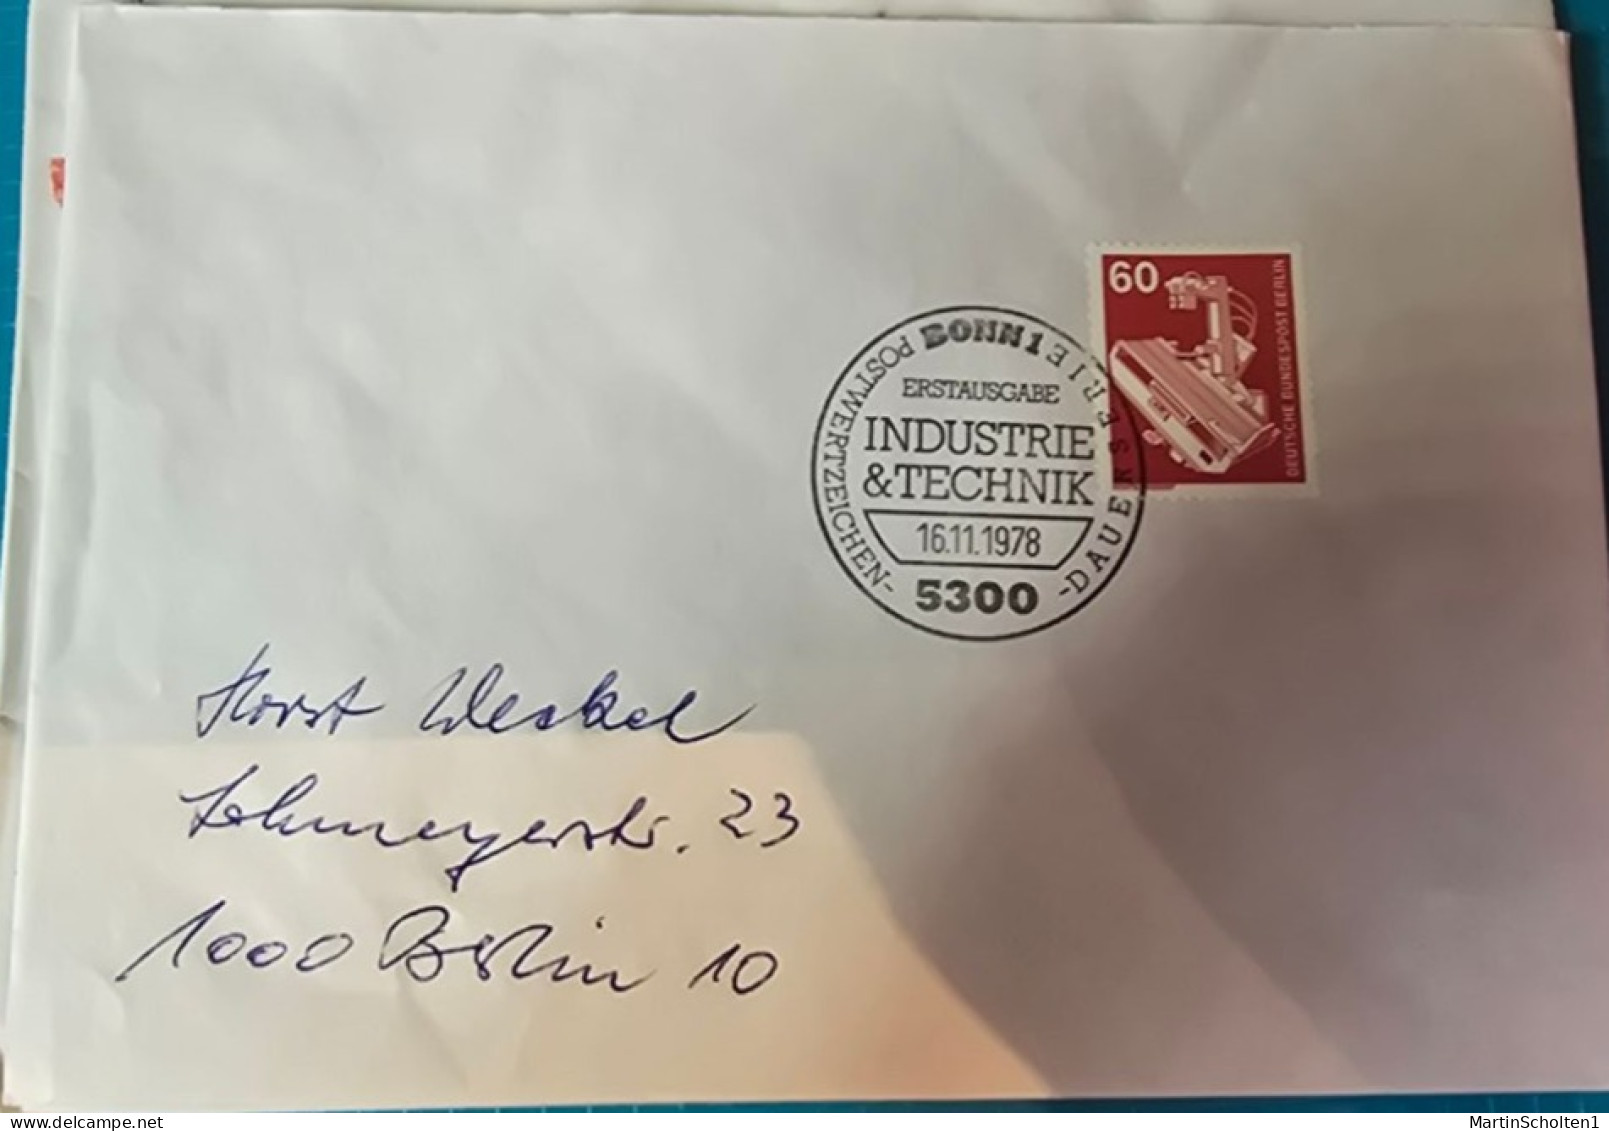 60
DEUTSCHE BUNDESPOST BERLIN
BONN 1
POSTWERTZEICHEN-
-DAUERSERIE
ERSTAUSGABE
INDUSTRIE
& TECHNIK
16.11.1978
5300
Horst Weckel
Lohmeyerstr. 23
1000 Berlin 10
delcampe.net
MartinScholten1